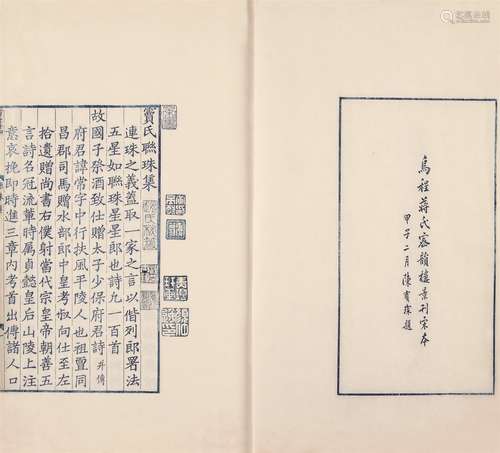 烏程蔣氏密韻樓景刊宋本
甲子二月陳寶琛題
竇氏聯珠集
連珠之義蓋取一家之言以偕列郎署法
五星如聯珠星星郎也詩凡一百首
故國子祭酒致仕贈太子少保府君詩 并傳
府君諱常字中行扶風平陵人也祖亶同
昌郡司馬贈水部郎中皇考叔向仕至左
拾遺贈尚書右僕射當代宗皇帝朝善五
言詩名冠流輩時屬貞懿皇后山陵上注
意哀挽即時進三章內考首出傳諸人口